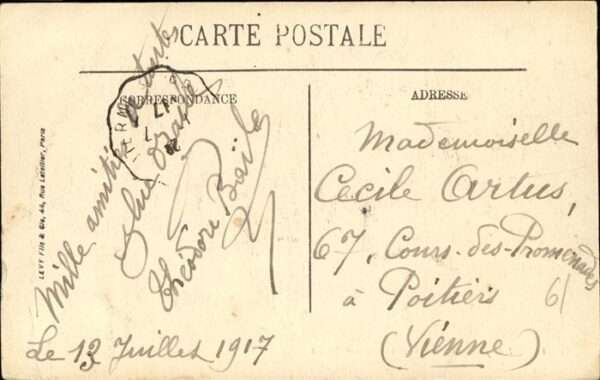 CARTE POSTALE
CORRESPONDANCE
ADRESSE
Mille amitiés à tous
Théodore Baile
Le 13 Juilles 1917
Mademoiselle
Cecile Artus,
67, Cours-des-Promenades
à Poitiers
61
(Vienne)
LEVY Fils & Cie, 44, Rue Letellier, Paris